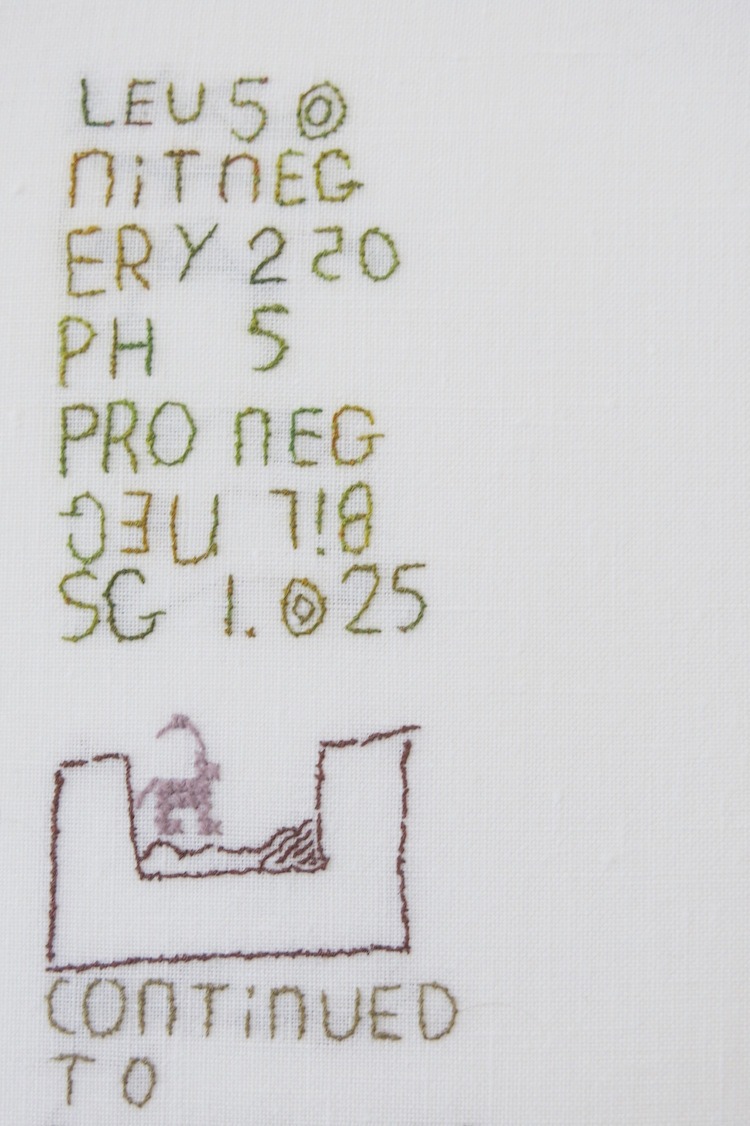 LEU 50
NiT NEG
ERY 250
PH 5
PRO NEG
BIL NEG
SG 1.025
CONTINUED
TO